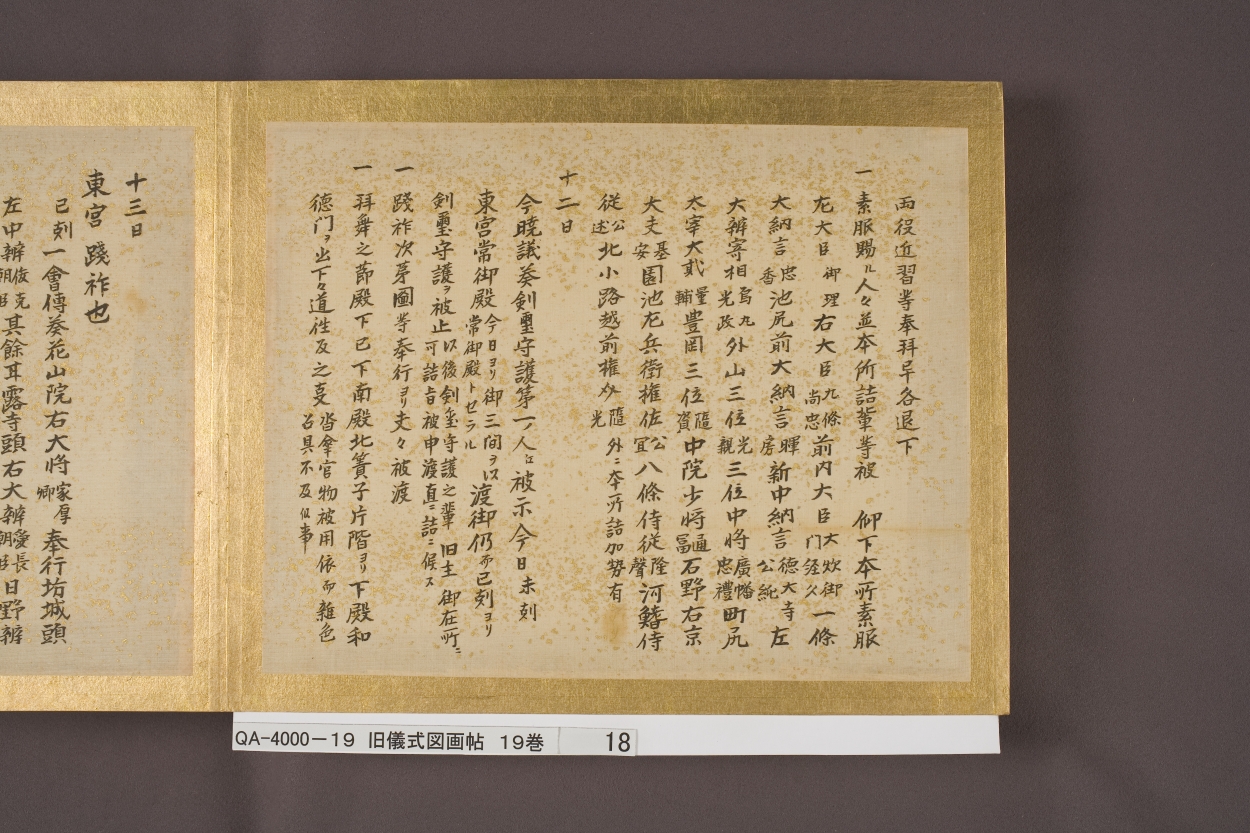 両役近習等奉拝畢各退下
一 素服賜ル人々並本所詰輩等被 仰下本所素服
左大臣 御理 右大臣 九條尚忠 前内大臣 大炊御門経久 一條
大納言 忠香 池尻前大納言 暉房 新中納言 徳大寺公純 左
大辨宰相 烏丸光政 外山三位 光親 三位中将 廣幡忠禮 町尻
太宰大貳 量輔 豊岡三位 隨資 中院少将 通冨 石野右京
大夫 基安 園池左兵衛権佐 公宜 八條侍従 隆聲 河鰭侍
従 公述 北小路越前権介 隨光 外ニ本所詰加勢有
十二日
今暁議奏剣璽守護第一ノ人江被示今日未刻
東宮常御殿 今日ヨリ御三間ヲ以常御殿トセラル 渡御仍而已刻ヨリ
剣璽守護ヲ被止 以後剣璽守護之輩旧主御在所ニ可詰旨被申渡直ニ詰ニ候ス
一 踐祚次第圖等奉行ヨリ夫々被渡
一 拝舞之節殿下已下南殿北簀子片階ヨリ下殿和
徳门ヲ出下々道徃反之㕝 沓傘官物被用依而雑色召具不及但事
十三日
東宮 踐祚也
已刻一會傳奏花山院右大将 家厚卿 奉行坊城頭
左中辨 俊克朝臣 其餘耳露寺頭右大辨 愛長朝臣 日野辨
QA-4000-19 旧儀式図画帖 19巻 18